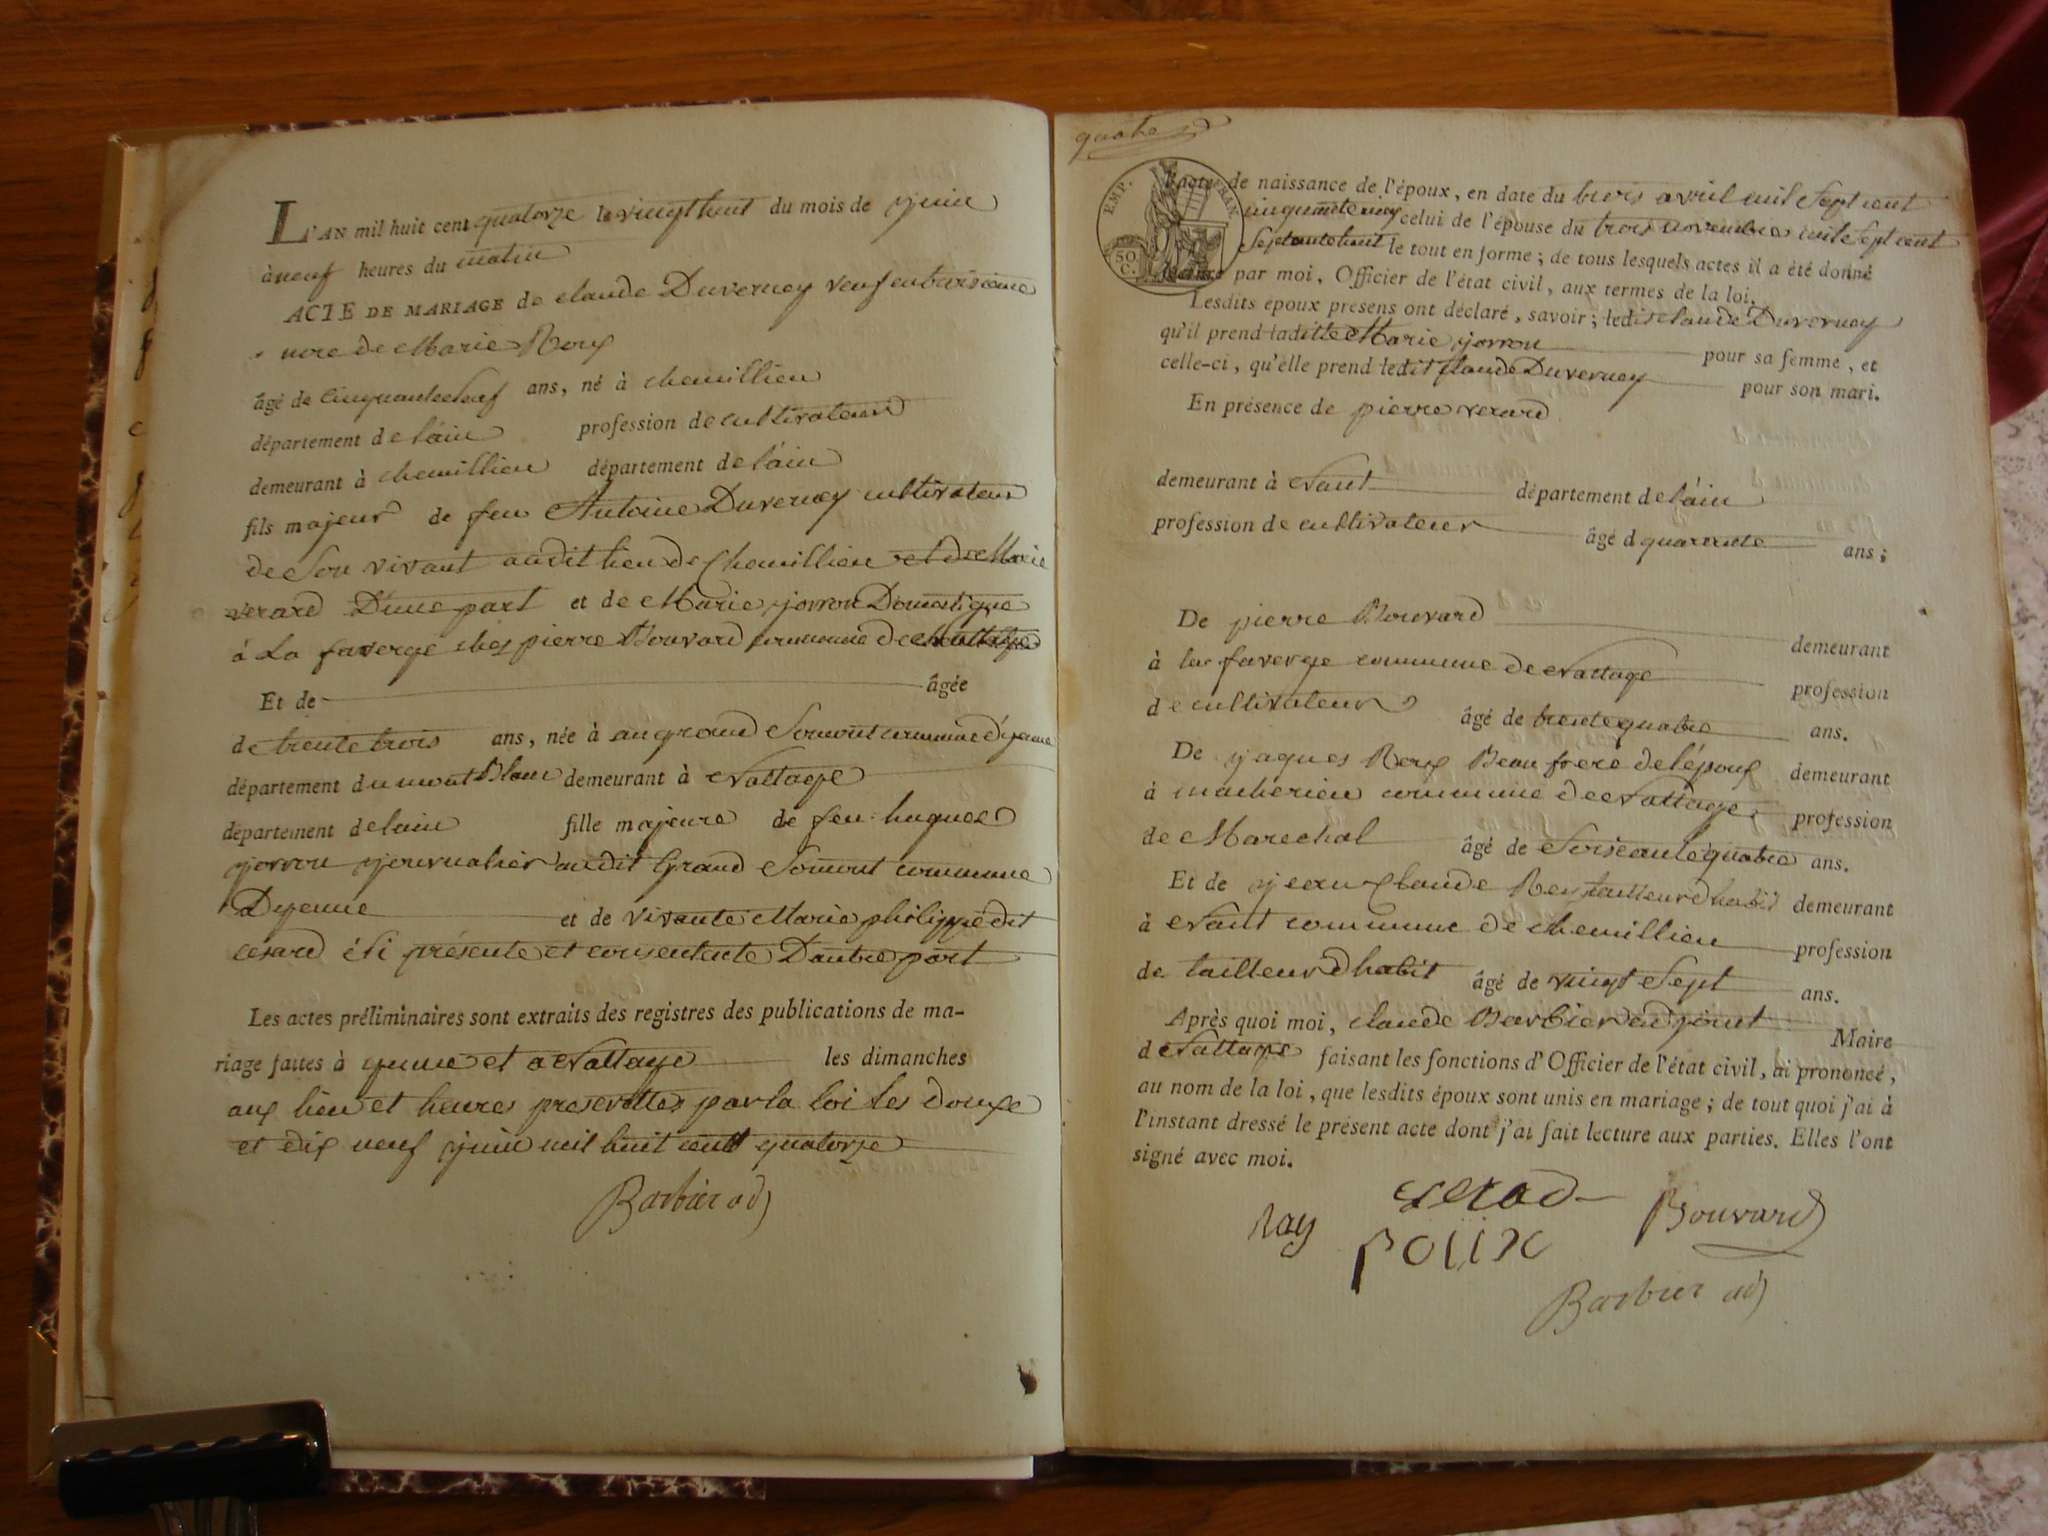 L'AN mil huit cent quatorze le vingt huit du mois de juin
à neuf heures du matin
ACTE DE MARIAGE de claude Duverney veuf en troisieme
nore de Marie Roux
âgé de cinquante neuf ans, né à chemillieu
département de l'ain profession de cultivateur
demeurant à chemillieu département de l'ain
fils majeur de feu Antoine Duverney cultivateur
de Son vivant audit lieu de Chemillieu et de Marie
verard D'une part et de Marie jorrou Domestique
à La faverge ches pierre Bouvard commune de
Et de âgée
de trente trois ans, née à au grand Somont commune d'yenne
département du mont Blanc demeurant à Nattage
département de lain fille majeure de feu hugues
jorrou journalier audit Grand Somont commune
Dyenne et de vivante Marie philippe dit
cesard ici présente et consentente D'autre part
Les actes préliminaires sont extraits des registres des publications de ma-
riage faites à yenne et a Nattage les dimanches
aux lieu et heures prescrittes par la loi les douze
et dix neuf juin mil huit cent quatorze
Barbier adj
quatre
EMP. FRAN.
50 C.
L'acte de naissance de l'époux, en date du trois avril mil Sept cent
cinquante cinq celui de l'épouse du trois novembre mil Sept cent
Septante huit le tout en forme ; de tous lesquels actes il a été donné
lecture par moi, Officier de l'état civil, aux termes de la loi.
Lesdits époux présens ont déclaré, savoir ; ledit claude Duverney
qu'il prend laditte Marie jorrou pour sa femme, et
celle-ci, qu'elle prend ledit Claude Duverney pour son mari.
En présence de pierre verard
demeurant à Nant département de l'ain
profession de cultivateur âgé d quarente ans ;
De pierre Bouvard demeurant
à la faverge commune de Nattage profession
de cultivateur âgé de trente quatre ans.
De jaques Roux Beau frere de l'époux demeurant
à commune de Nattage profession
de Marechal âgé de Soiseante quatre ans.
Et de jean Claude Rey tailleur d'habit demeurant
à Nant commune de chemillieu profession
de tailleur d'habit âgé de vingt Sept ans.
Après quoi moi, claude Barbier adjoint Maire
d Nattage faisant les fonctions d'Officier de l'état civil, ai prononcé,
au nom de la loi, que lesdits époux sont unis en mariage ; de tout quoi j'ai à
l'instant dressé le présent acte dont j'ai fait lecture aux parties. Elles l'ont
signé avec moi.
Bouvard
Ray
Barbier adj